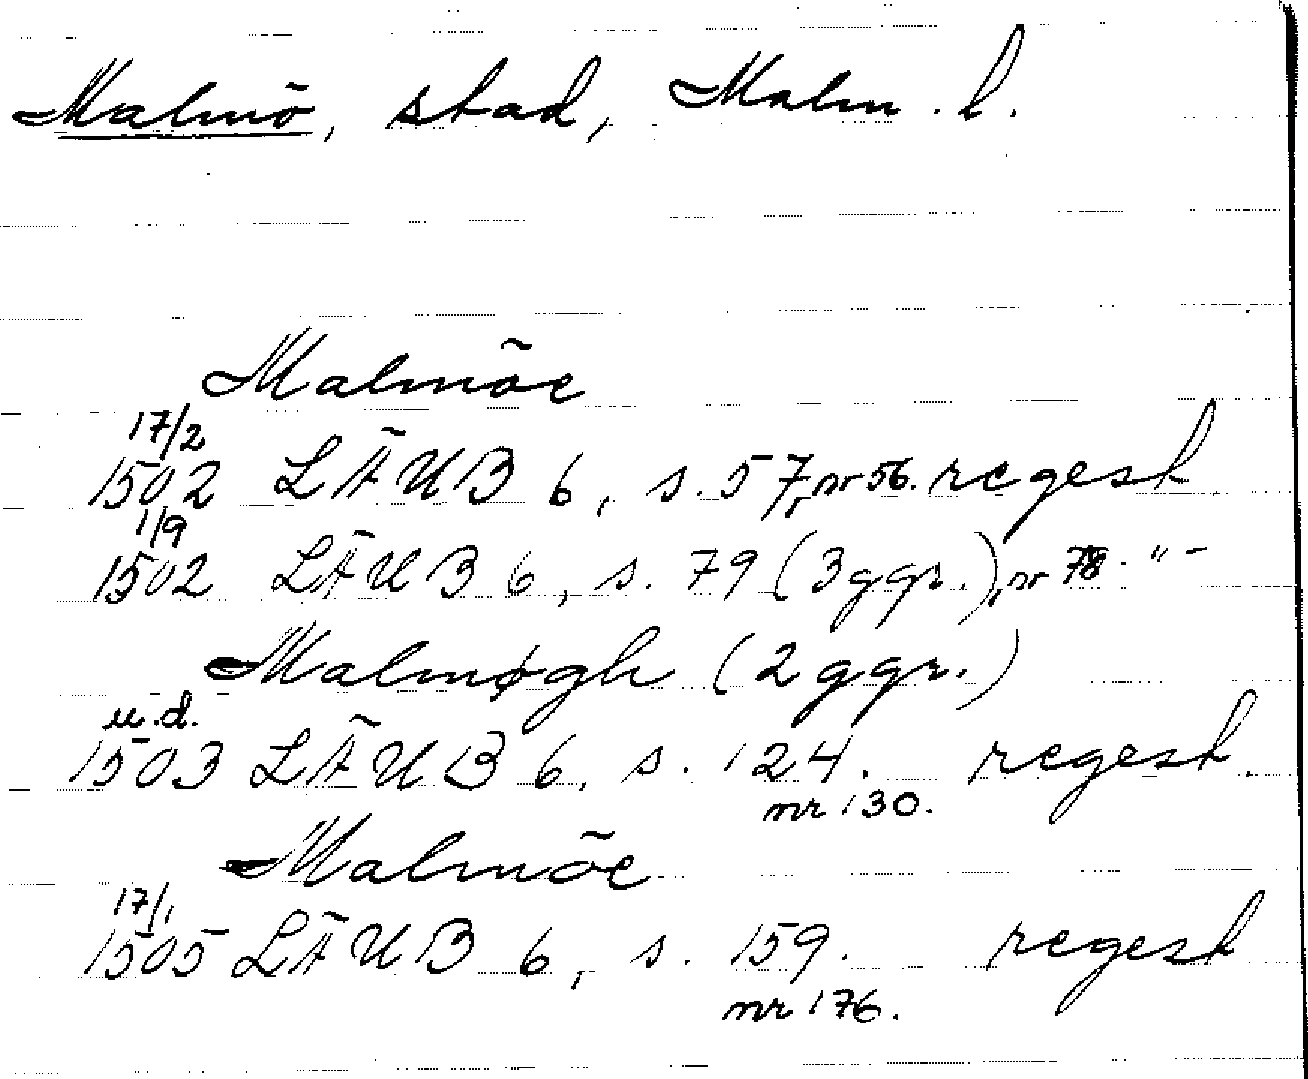 Malmö, stad, Malm. l.
Malmöe
17/2
1502 LÄUB 6, s. 57, nr 56. regest
1/9
1502 LÄUB 6, s. 79 (3 ggr.), nr 78. "-
Malmøgh (2 ggr.)
u.d.
1503 LÄUB 6, s. 124. regest.
nr 130.
Malmöe
17/1
1505 LÄUB 6, s. 159. regest
nr 176.